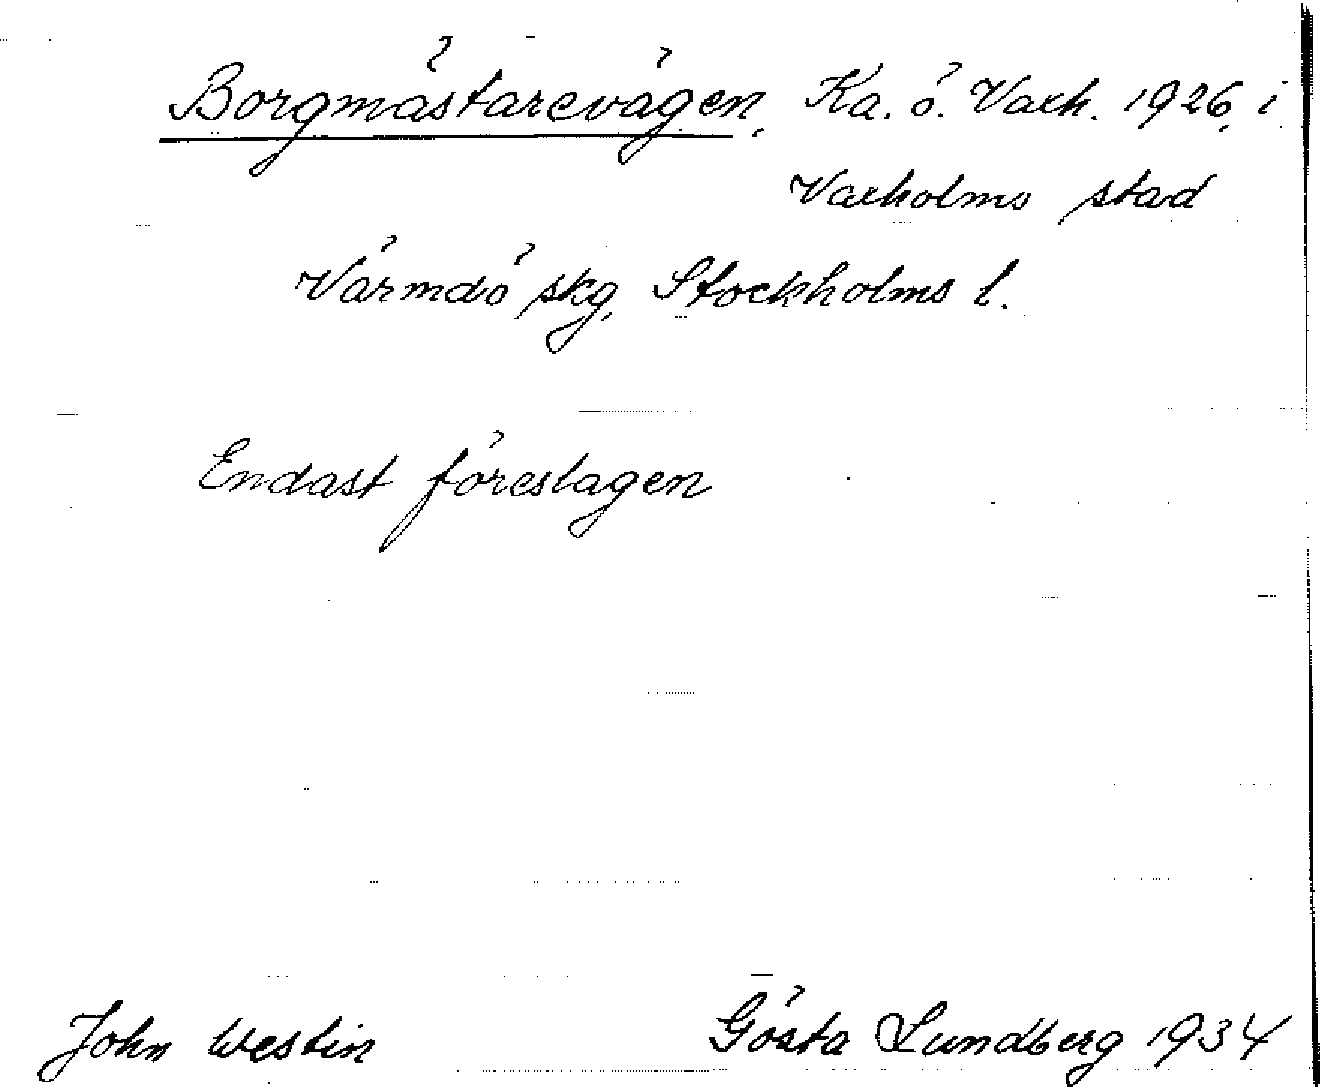 Borgmästarevägen, Ka. ö. Vaxh. 1926, i
Vaxholms stad
Värmdö skg, Stockholms l.
Endast föreslagen
John Westin
Gösta Lundberg 1934